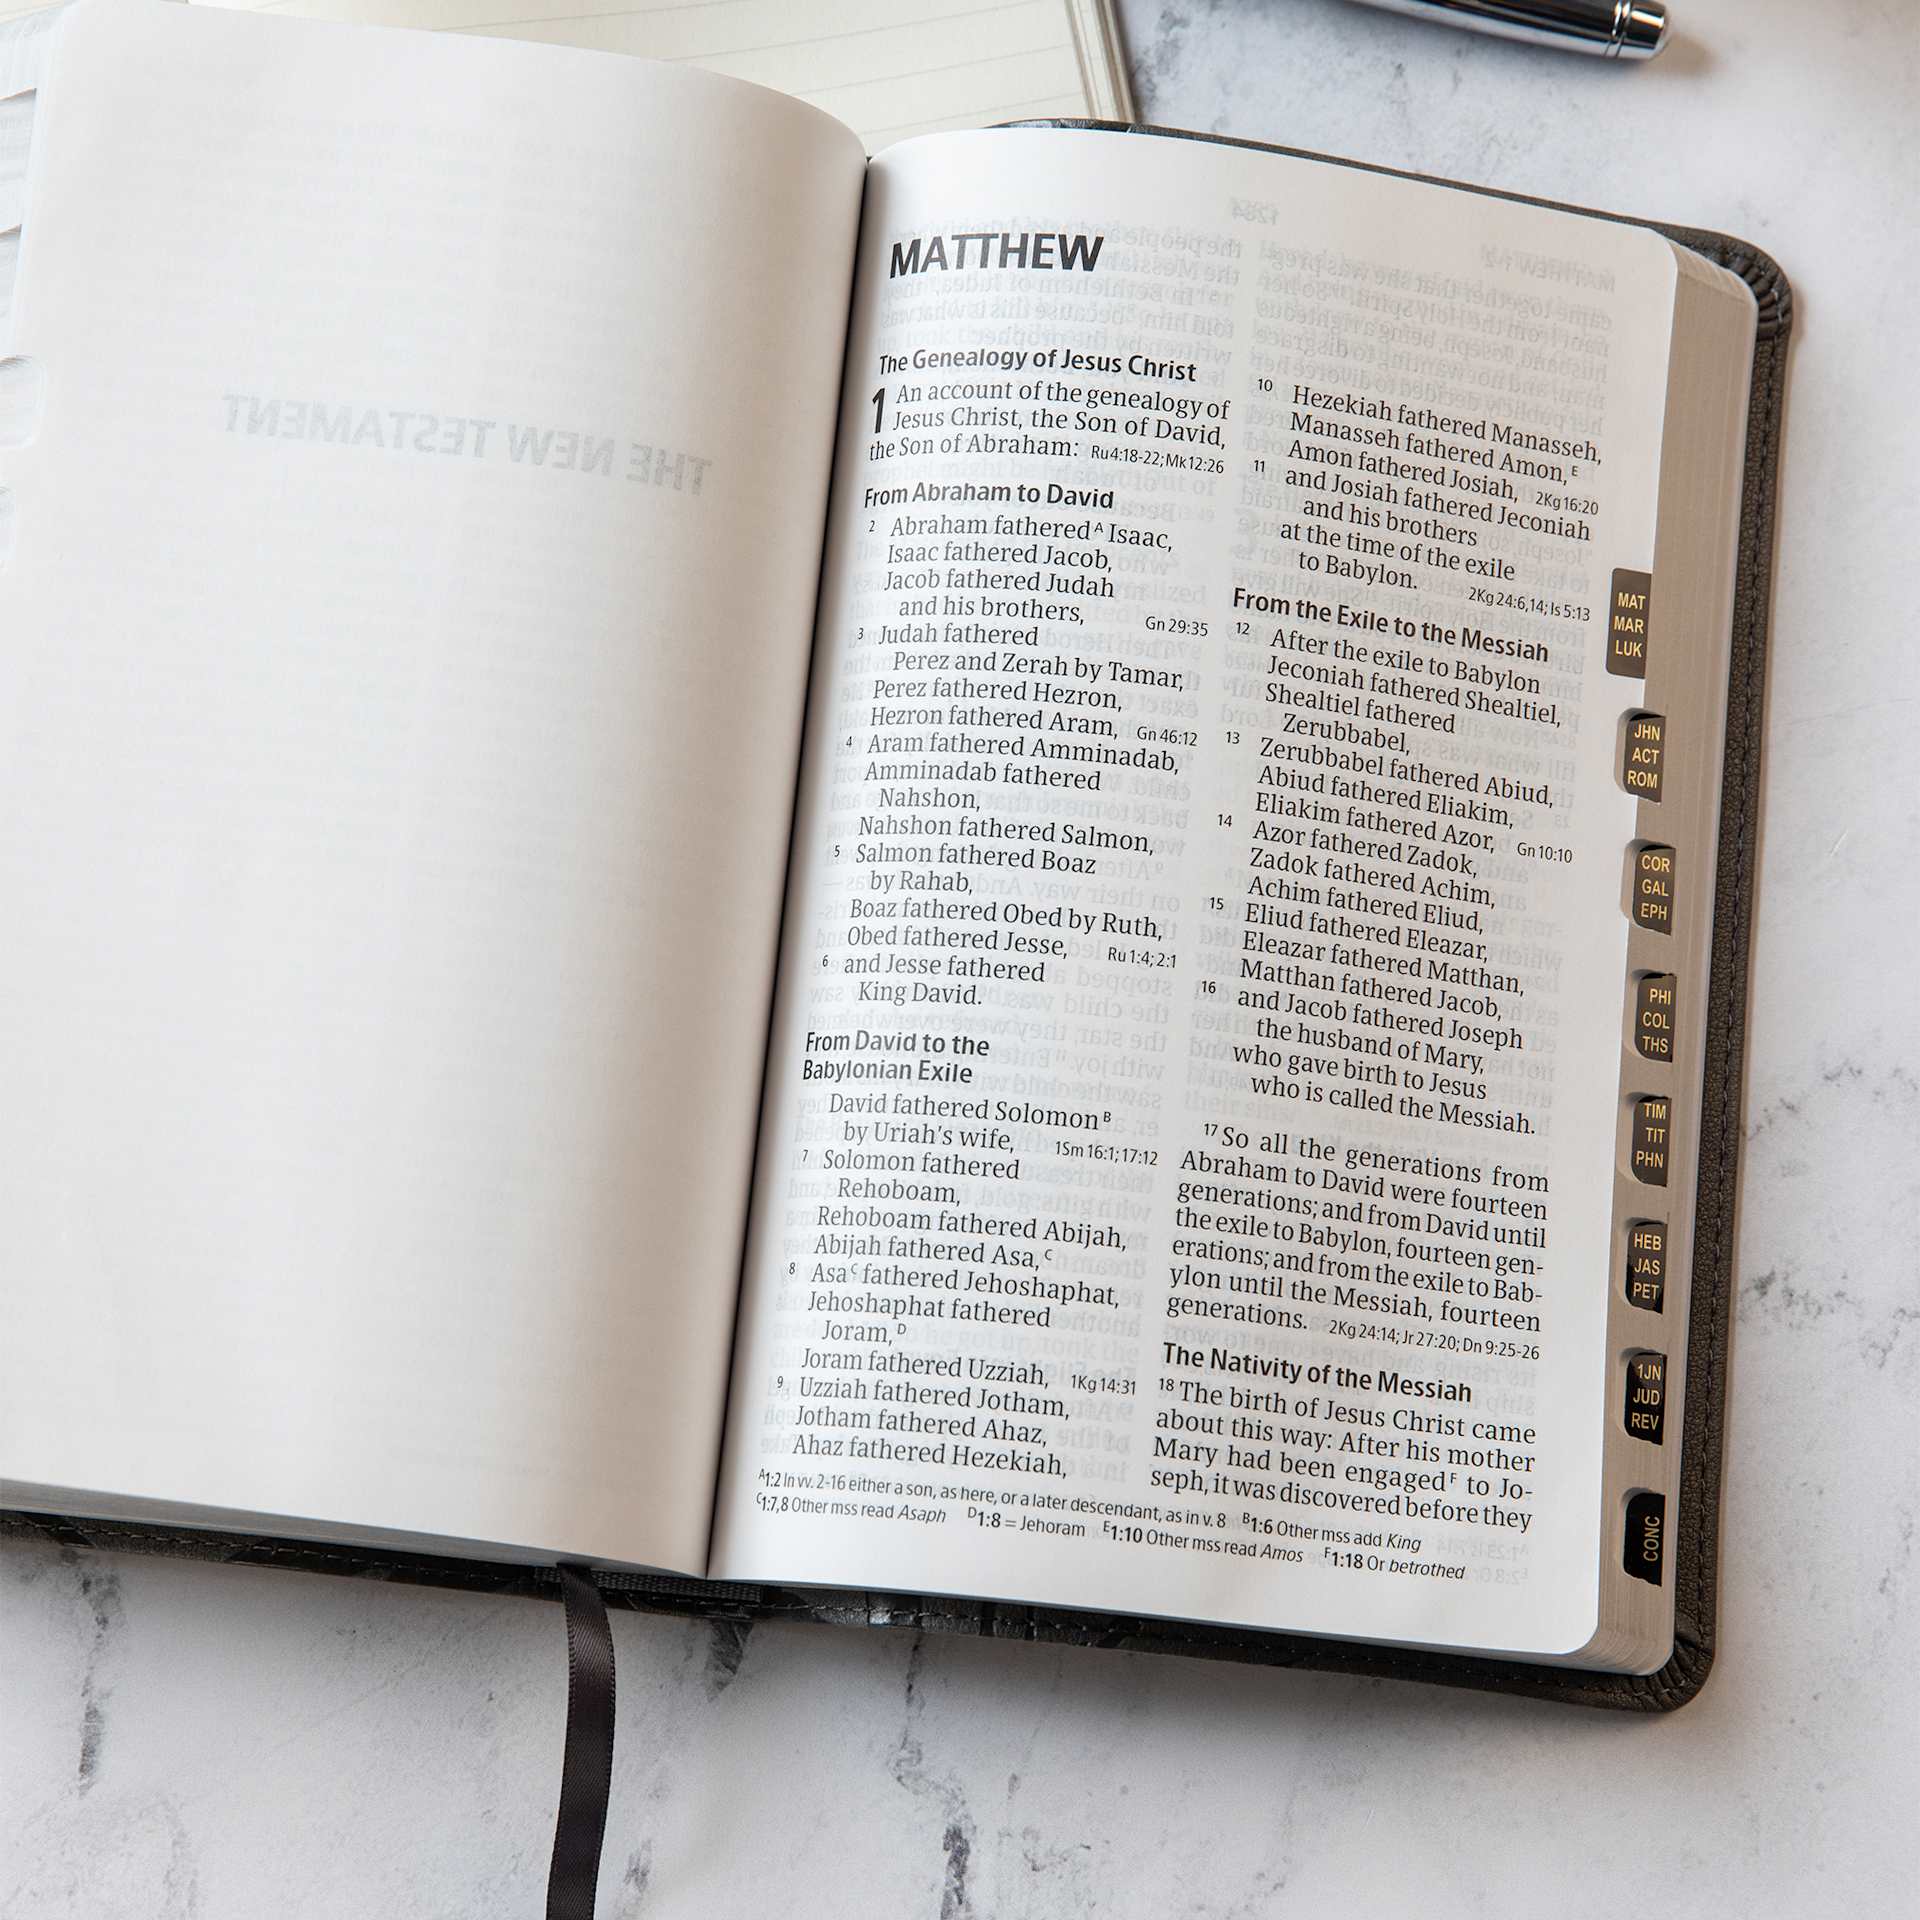 THE NEW TESTAMENT
1264
MATTHEW
The Genealogy of Jesus Christ
1 An account of the genealogy of
Jesus Christ, the Son of David,
the Son of Abraham: Ru 4:18-22; Mk 12:26
From Abraham to David
2 Abraham fathered A Isaac,
Isaac fathered Jacob,
Jacob fathered Judah
and his brothers, Gn 29:35
3 Judah fathered
Perez and Zerah by Tamar,
Perez fathered Hezron,
Hezron fathered Aram, Gn 46:12
4 Aram fathered Amminadab,
Amminadab fathered
Nahshon,
Nahshon fathered Salmon,
5 Salmon fathered Boaz
by Rahab,
Boaz fathered Obed by Ruth,
Obed fathered Jesse, Ru 1:4; 2:1
6 and Jesse fathered
King David.
From David to the
Babylonian Exile
David fathered Solomon B
by Uriah's wife, 1Sm 16:1; 17:12
7 Solomon fathered
Rehoboam,
Rehoboam fathered Abijah,
Abijah fathered Asa, C
8 Asa C fathered Jehoshaphat,
Jehoshaphat fathered
Joram, D
Joram fathered Uzziah, 1Kg 14:31
9 Uzziah fathered Jotham,
Jotham fathered Ahaz,
Ahaz fathered Hezekiah,
10 Hezekiah fathered Manasseh,
Manasseh fathered Amon, E
Amon fathered Josiah, 2Kg 16:20
11 and Josiah fathered Jeconiah
and his brothers
at the time of the exile
to Babylon. 2Kg 24:6,14; Is 5:13
From the Exile to the Messiah
12 After the exile to Babylon
Jeconiah fathered Shealtiel,
Shealtiel fathered
Zerubbabel,
13 Zerubbabel fathered Abiud,
Abiud fathered Eliakim,
Eliakim fathered Azor, Gn 10:10
14 Azor fathered Zadok,
Zadok fathered Achim,
Achim fathered Eliud,
15 Eliud fathered Eleazar,
Eleazar fathered Matthan,
Matthan fathered Jacob,
16 and Jacob fathered Joseph
the husband of Mary,
who gave birth to Jesus
who is called the Messiah.
17 So all the generations from
Abraham to David were fourteen
generations; and from David until
the exile to Babylon, fourteen gen-
erations; and from the exile to Bab-
ylon until the Messiah, fourteen
generations. 2Kg 24:14; Jr 27:20; Dn 9:25-26
The Nativity of the Messiah
18 The birth of Jesus Christ came
about this way: After his mother
Mary had been engaged F to Jo-
seph, it was discovered before they
A1:2 In vv. 2-16 either a son, as here, or a later descendant, as in v. 8 B1:6 Other mss add King
C1:7,8 Other mss read Asaph D1:8 = Jehoram E1:10 Other mss read Amos F1:18 Or betrothed
MAT
MAR
LUK
JHN
ACT
ROM
COR
GAL
EPH
PHI
COL
THS
TIM
TIT
PHN
HEB
JAS
PET
1JN
JUD
REV
CONC